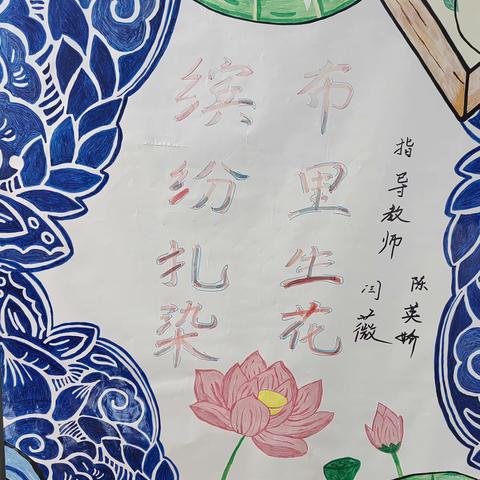 布里生花
缤纷扎染
指导教师
陈英
闫薇